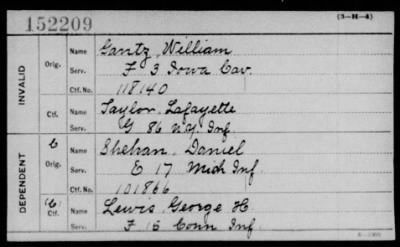 152209
(3-H-4)
INVALID
Orig. Name Gantz, William
Serv. F 3 Iowa Cav.
Ctf. No. 118140
Ctf. Name Taylor, Lafayette
Serv. G 86 N.Y. Inf.
DEPENDENT
C Orig. Name Shehan, Daniel
Serv. E 17 Mich Inf
Ctf. No. 101866
"C" Ctf. Name Lewis, George H
Serv. F 15 Conn Inf